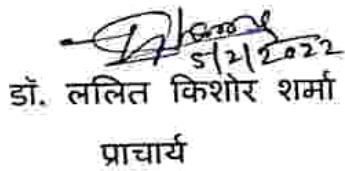 5/2/2022
डॉ. ललित किशोर शर्मा
प्राचार्य